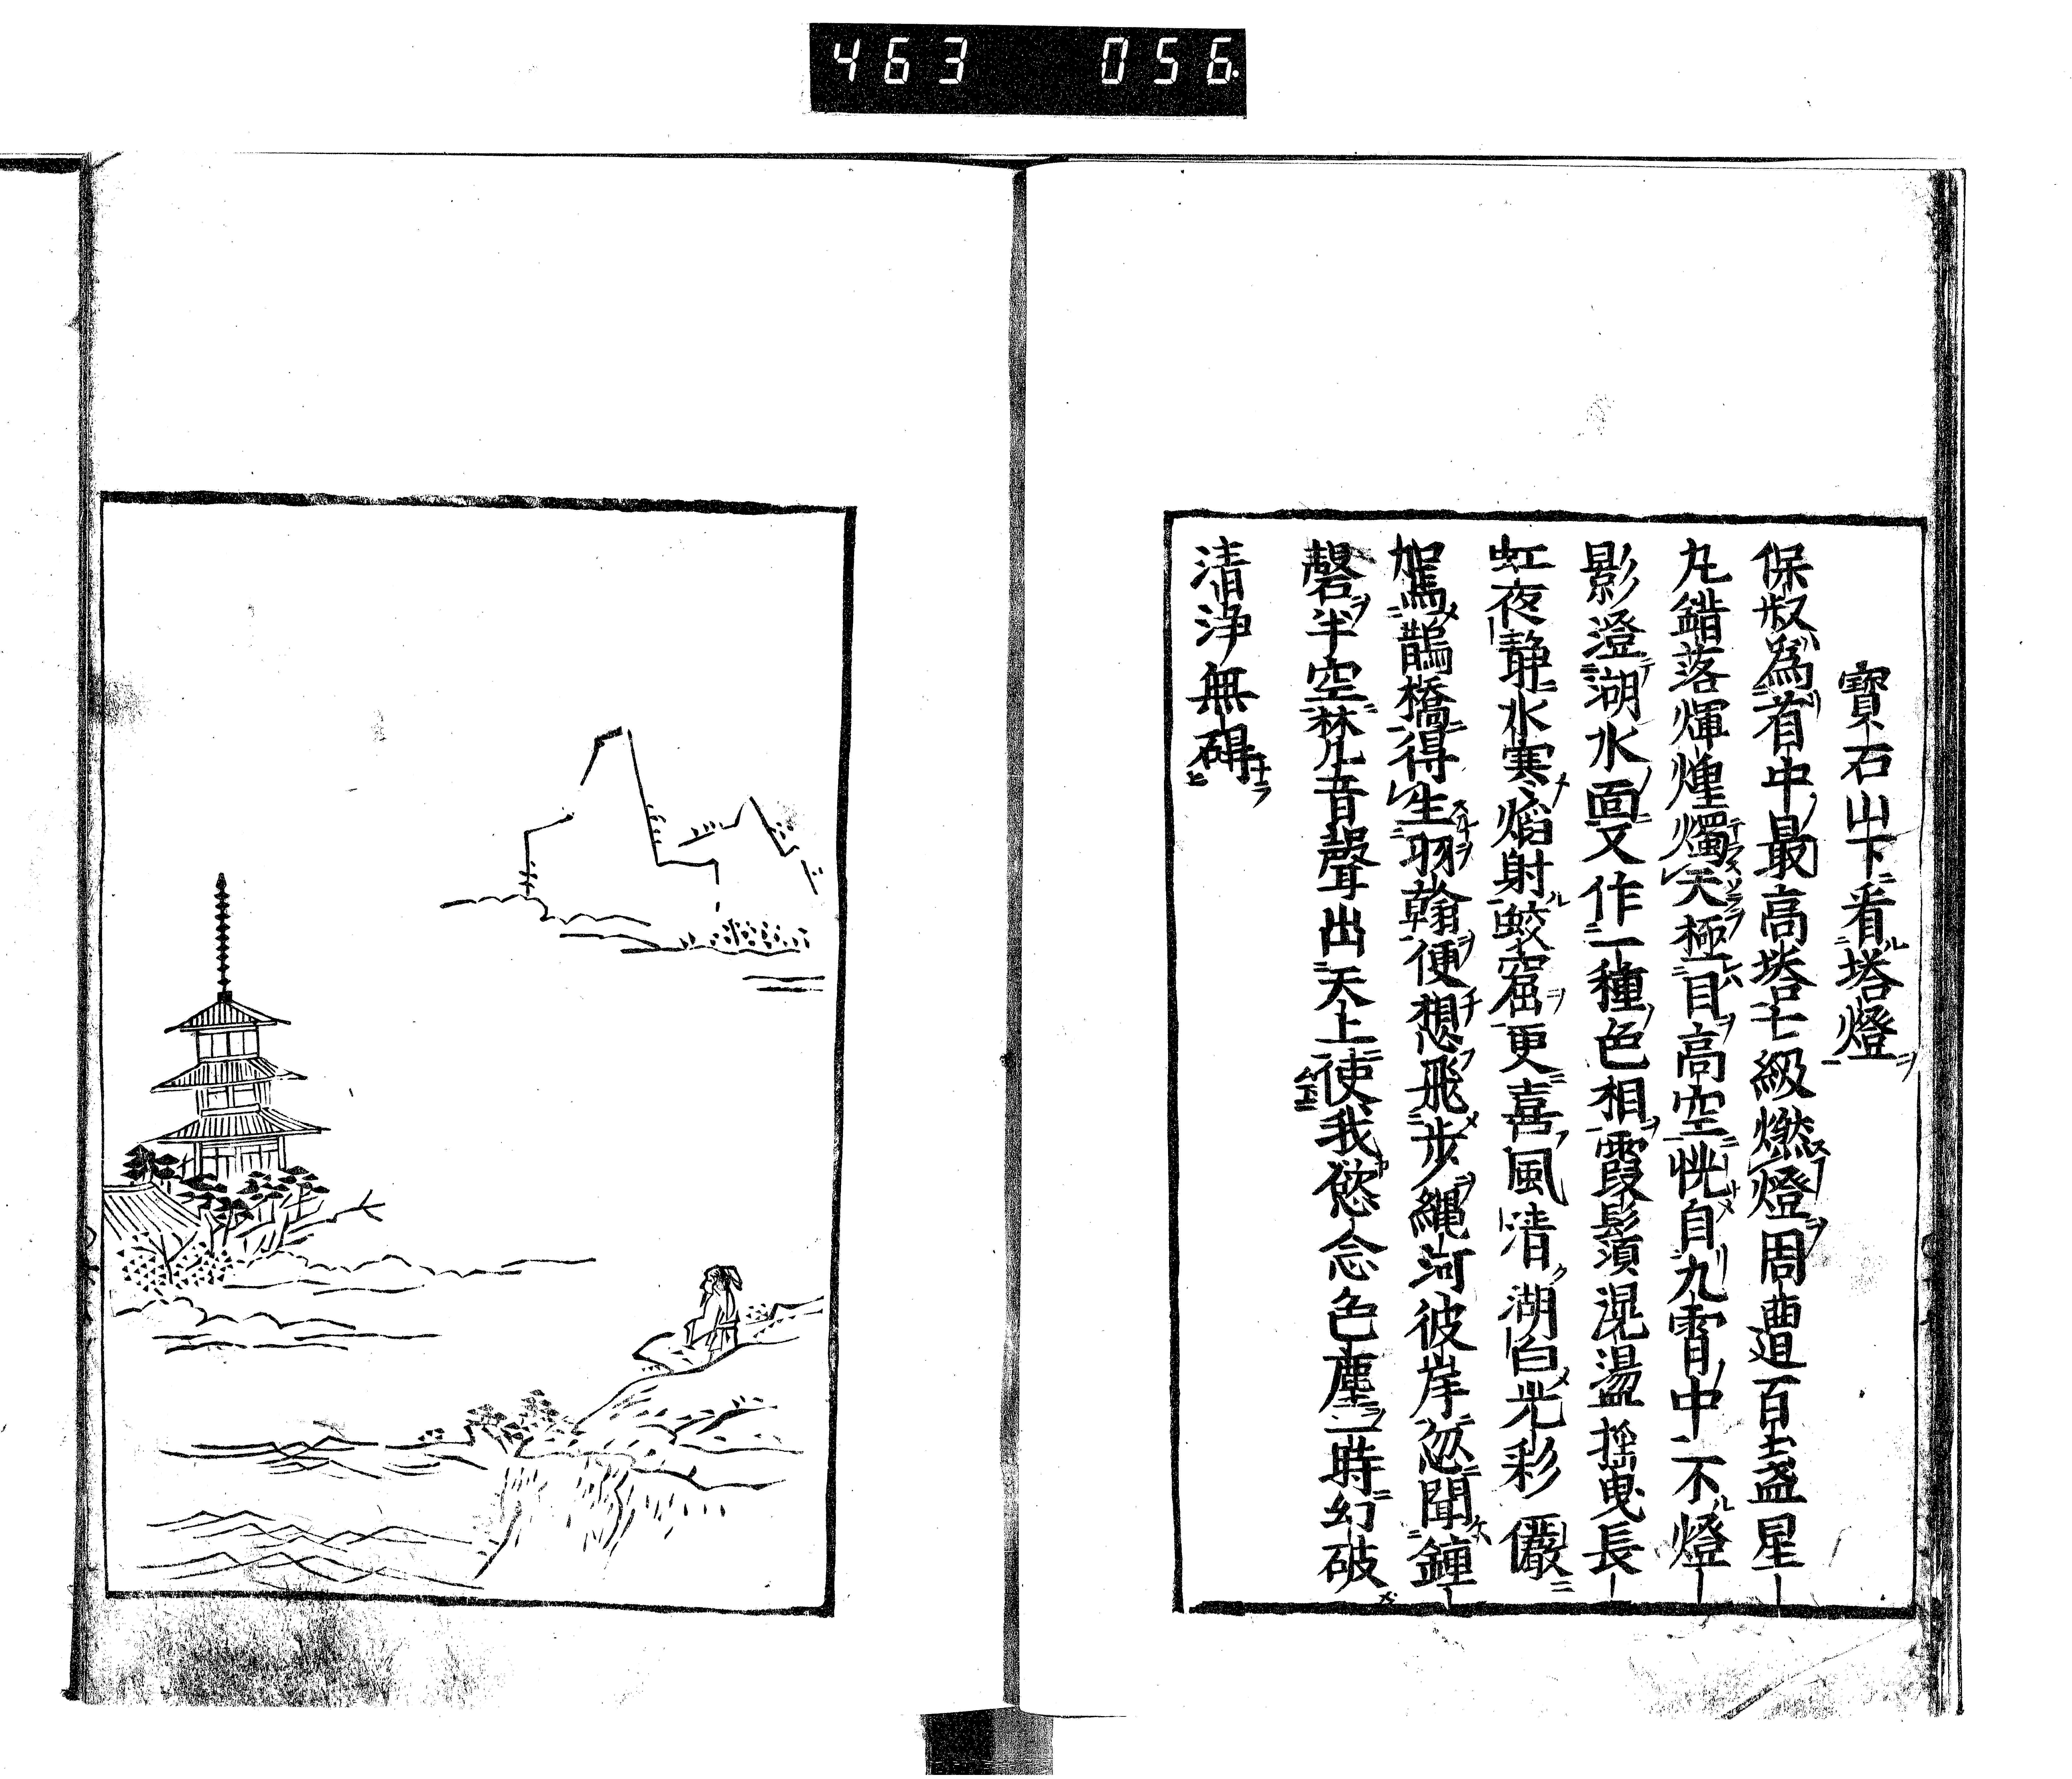 463 056
寶石山下看塔燈
保叔為省中最高塔七級燃燈周遭百盞星
丸錯落輝煌燭天極目高空恍自九霄中下燈
影澄湖水面又作一種色相霞鬆須滉盪搖曳長
虹夜靜水寒焰射蛟窟更喜風清湖白光彩儼
駕鵲橋得生羽翰便想飛步繩河彼岸忽聞鐘
磬半空梵音聲出天上使我慾念色塵一時幻破
清淨無碍